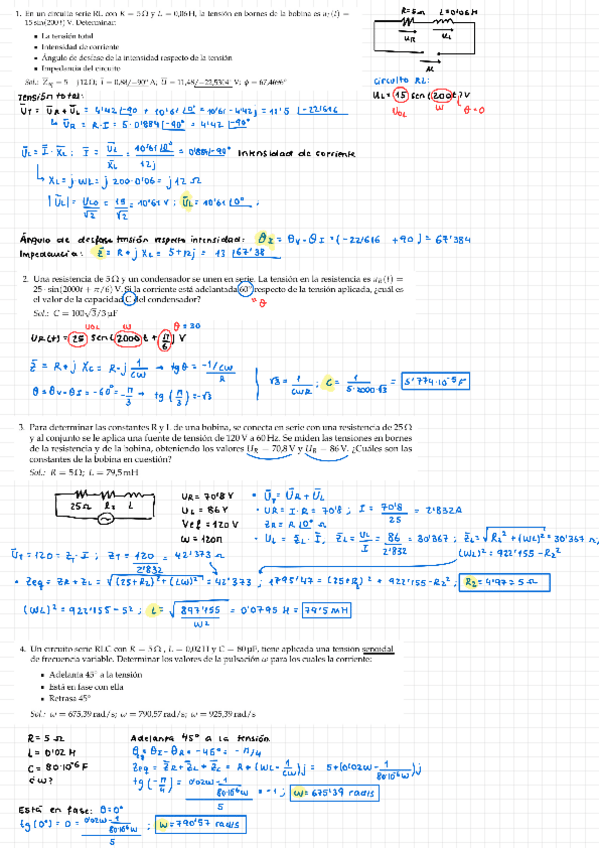 1. En un circuito serie RL con R = 5 Ω y L = 0,06 H, la tensión en bornes de la bobina es u_L(t) =
15 sin(200t) V. Determinar:
• La tensión total
• Intensidad de corriente
• Ángulo de desfase de la intensidad respecto de la tensión
• Impedancia del circuito
R=5Ω L=0'06H
UR UL
U
Circuito RL:
UL = 15 sen (200t) V
UOL W θ=0
Tensión total:
UT = UR + UL = 4'42 |-90° + 10'61 |0° = 10'61 - 4'42j = 11'5 |-22'616
UR = R·I = 5·0'884 |-90° = 4'42 |-90°
UL = I·XL ; I = UL/XL = 10'61 |0°/12j = 0'884 |-90° Intensidad de corriente
XL = j WL = j 200·0'06 = j 12 Ω
|UL| = UL0/√2 = 15/√2 = 10'61 V ; UL = 10'61 |0° ;
Ángulo de desfase tensión respecto intensidad: θZ = θV - θI = (-22'616 + 90) = 67'384
Impedancia: Z = R + j XL = 5 + 12j = 13 |67'38
2. Una resistencia de 5 Ω y un condensador se unen en serie. La tensión en la resistencia es u_R(t) =
25 · sin(2000t + π/6) V. Si la corriente está adelantada 60° respecto de la tensión aplicada, ¿cuál es
el valor de la capacidad C del condensador?
= θ
Sol.: C = 100√3/3 µF
UOL W θ = 30
UR(t) = 25 sen (2000 t + π/6) V
Z = R + j XC = R - j 1/CW → tg θ = (-1/CW)/R
θ = θV - θI = -60° = -π/3 → tg (π/3) = -√3
√3 = 1/CWR ; C = 1/(5·2000·√3) = 5'774·10⁻⁵ F
3. Para determinar las constantes R y L de una bobina, se conecta en serie con una resistencia de 25 Ω
y al conjunto se le aplica una fuente de tensión de 120 V a 60 Hz. Se miden las tensiones en bornes
de la resistencia y de la bobina, obteniendo los valores U_R = 70,8 V y U_B = 86 V. ¿Cuáles son las
constantes de la bobina en cuestión?
Sol.: R = 5 Ω; L = 79,5 mH
25Ω R2 L
UR = 70'8 V
UL = 86 V
Vef = 120 V
W = 120π
• UT = UR + UL
• UR = I·R = 70'8 ; I = 70'8/25 = 2'832 A
ZR = R |0° Ω
• UL = ZL·I, ZL = UL/I = 86/2'832 = 30'367 ; ZL = √(R2² + (WL)²) = 30'367 Ω ;
(WL)² = 922'155 - R2²
UT = 120 = ZT·I ; ZT = 120/2'832 = 42'373 Ω
• Zeq = ZR + ZL = √((25+R2)² + (LW)²) = 42'373 ; 1795'47 = (25+R2)² + 922'155 - R2² ; R2 = 4'97 ≈ 5 Ω
(WL)² = 922'155 - 5² ; L = √(897'155/W²) = 0'0795 H = 79'5 mH
4. Un circuito serie RLC con R = 5 Ω, L = 0,02 H y C = 80 µF, tiene aplicada una tensión senoidal
de frecuencia variable. Determinar los valores de la pulsación ω para los cuales la corriente:
• Adelanta 45° a la tensión
• Está en fase con ella
• Retrasa 45°
Sol.: ω = 675,39 rad/s; ω = 790,57 rad/s; ω = 925,39 rad/s
R = 5 Ω
L = 0'02 H
C = 80·10⁻⁶ F
¿W?
Adelanta 45° a la tensión
= -45° = -π/4
Zeq = ZR + ZL + ZC = R + (WL - 1/CW)j = 5 + (0'02W - 1/80·10⁻⁶W)j
tg(-π/4) = (0'02W - 1/80·10⁻⁶W)/5 = -1 ; W = 675'39 rad/s
Está en fase: θ=0°
tg(0°) = 0 = (0'02W - 1/80·10⁻⁶W)/5 ; W = 790'57 rad/s